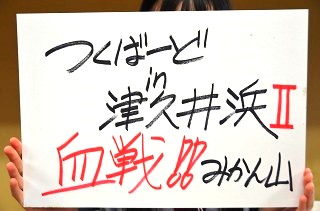 つくばーど
in
津久井浜Ⅱ
血戦!!みかん山